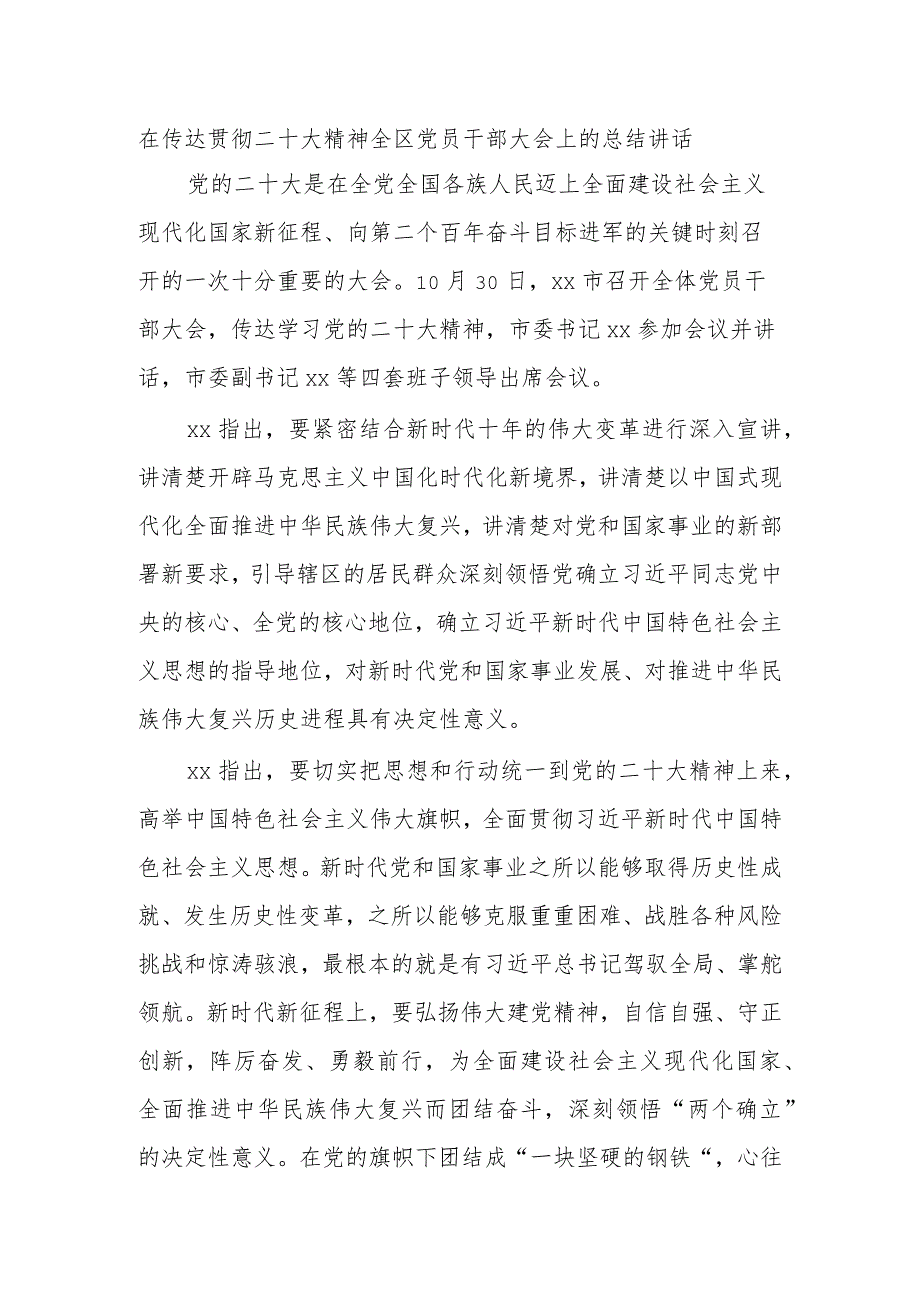 在传达贯彻二十大精神全区党员干部大会上的总结讲话
党的二十大是在全党全国各族人民迈上全面建设社会主义
现代化国家新征程、向第二个百年奋斗目标进军的关键时刻召
开的一次十分重要的大会。10月30日，xx市召开全体党员干
部大会，传达学习党的二十大精神，市委书记xx参加会议并讲
话，市委副书记xx等四套班子领导出席会议。
xx指出，要紧密结合新时代十年的伟大变革进行深入宣讲，
讲清楚开辟马克思主义中国化时代化新境界，讲清楚以中国式现
代化全面推进中华民族伟大复兴，讲清楚对党和国家事业的新部
署新要求，引导辖区的居民群众深刻领悟党确立习近平同志党中
央的核心、全党的核心地位，确立习近平新时代中国特色社会主
义思想的指导地位，对新时代党和国家事业发展、对推进中华民
族伟大复兴历史进程具有决定性意义。
xx指出，要切实把思想和行动统一到党的二十大精神上来，
高举中国特色社会主义伟大旗帜，全面贯彻习近平新时代中国特
色社会主义思想。新时代党和国家事业之所以能够取得历史性成
就、发生历史性变革，之所以能够克服重重困难、战胜各种风险
挑战和惊涛骇浪，最根本的就是有习近平总书记驾驭全局、掌舵
领航。新时代新征程上，要弘扬伟大建党精神，自信自强、守正
创新，踔厉奋发、勇毅前行，为全面建设社会主义现代化国家、
全面推进中华民族伟大复兴而团结奋斗，深刻领悟“两个确立”
的决定性意义。在党的旗帜下团结成“一块坚硬的钢铁“，心往